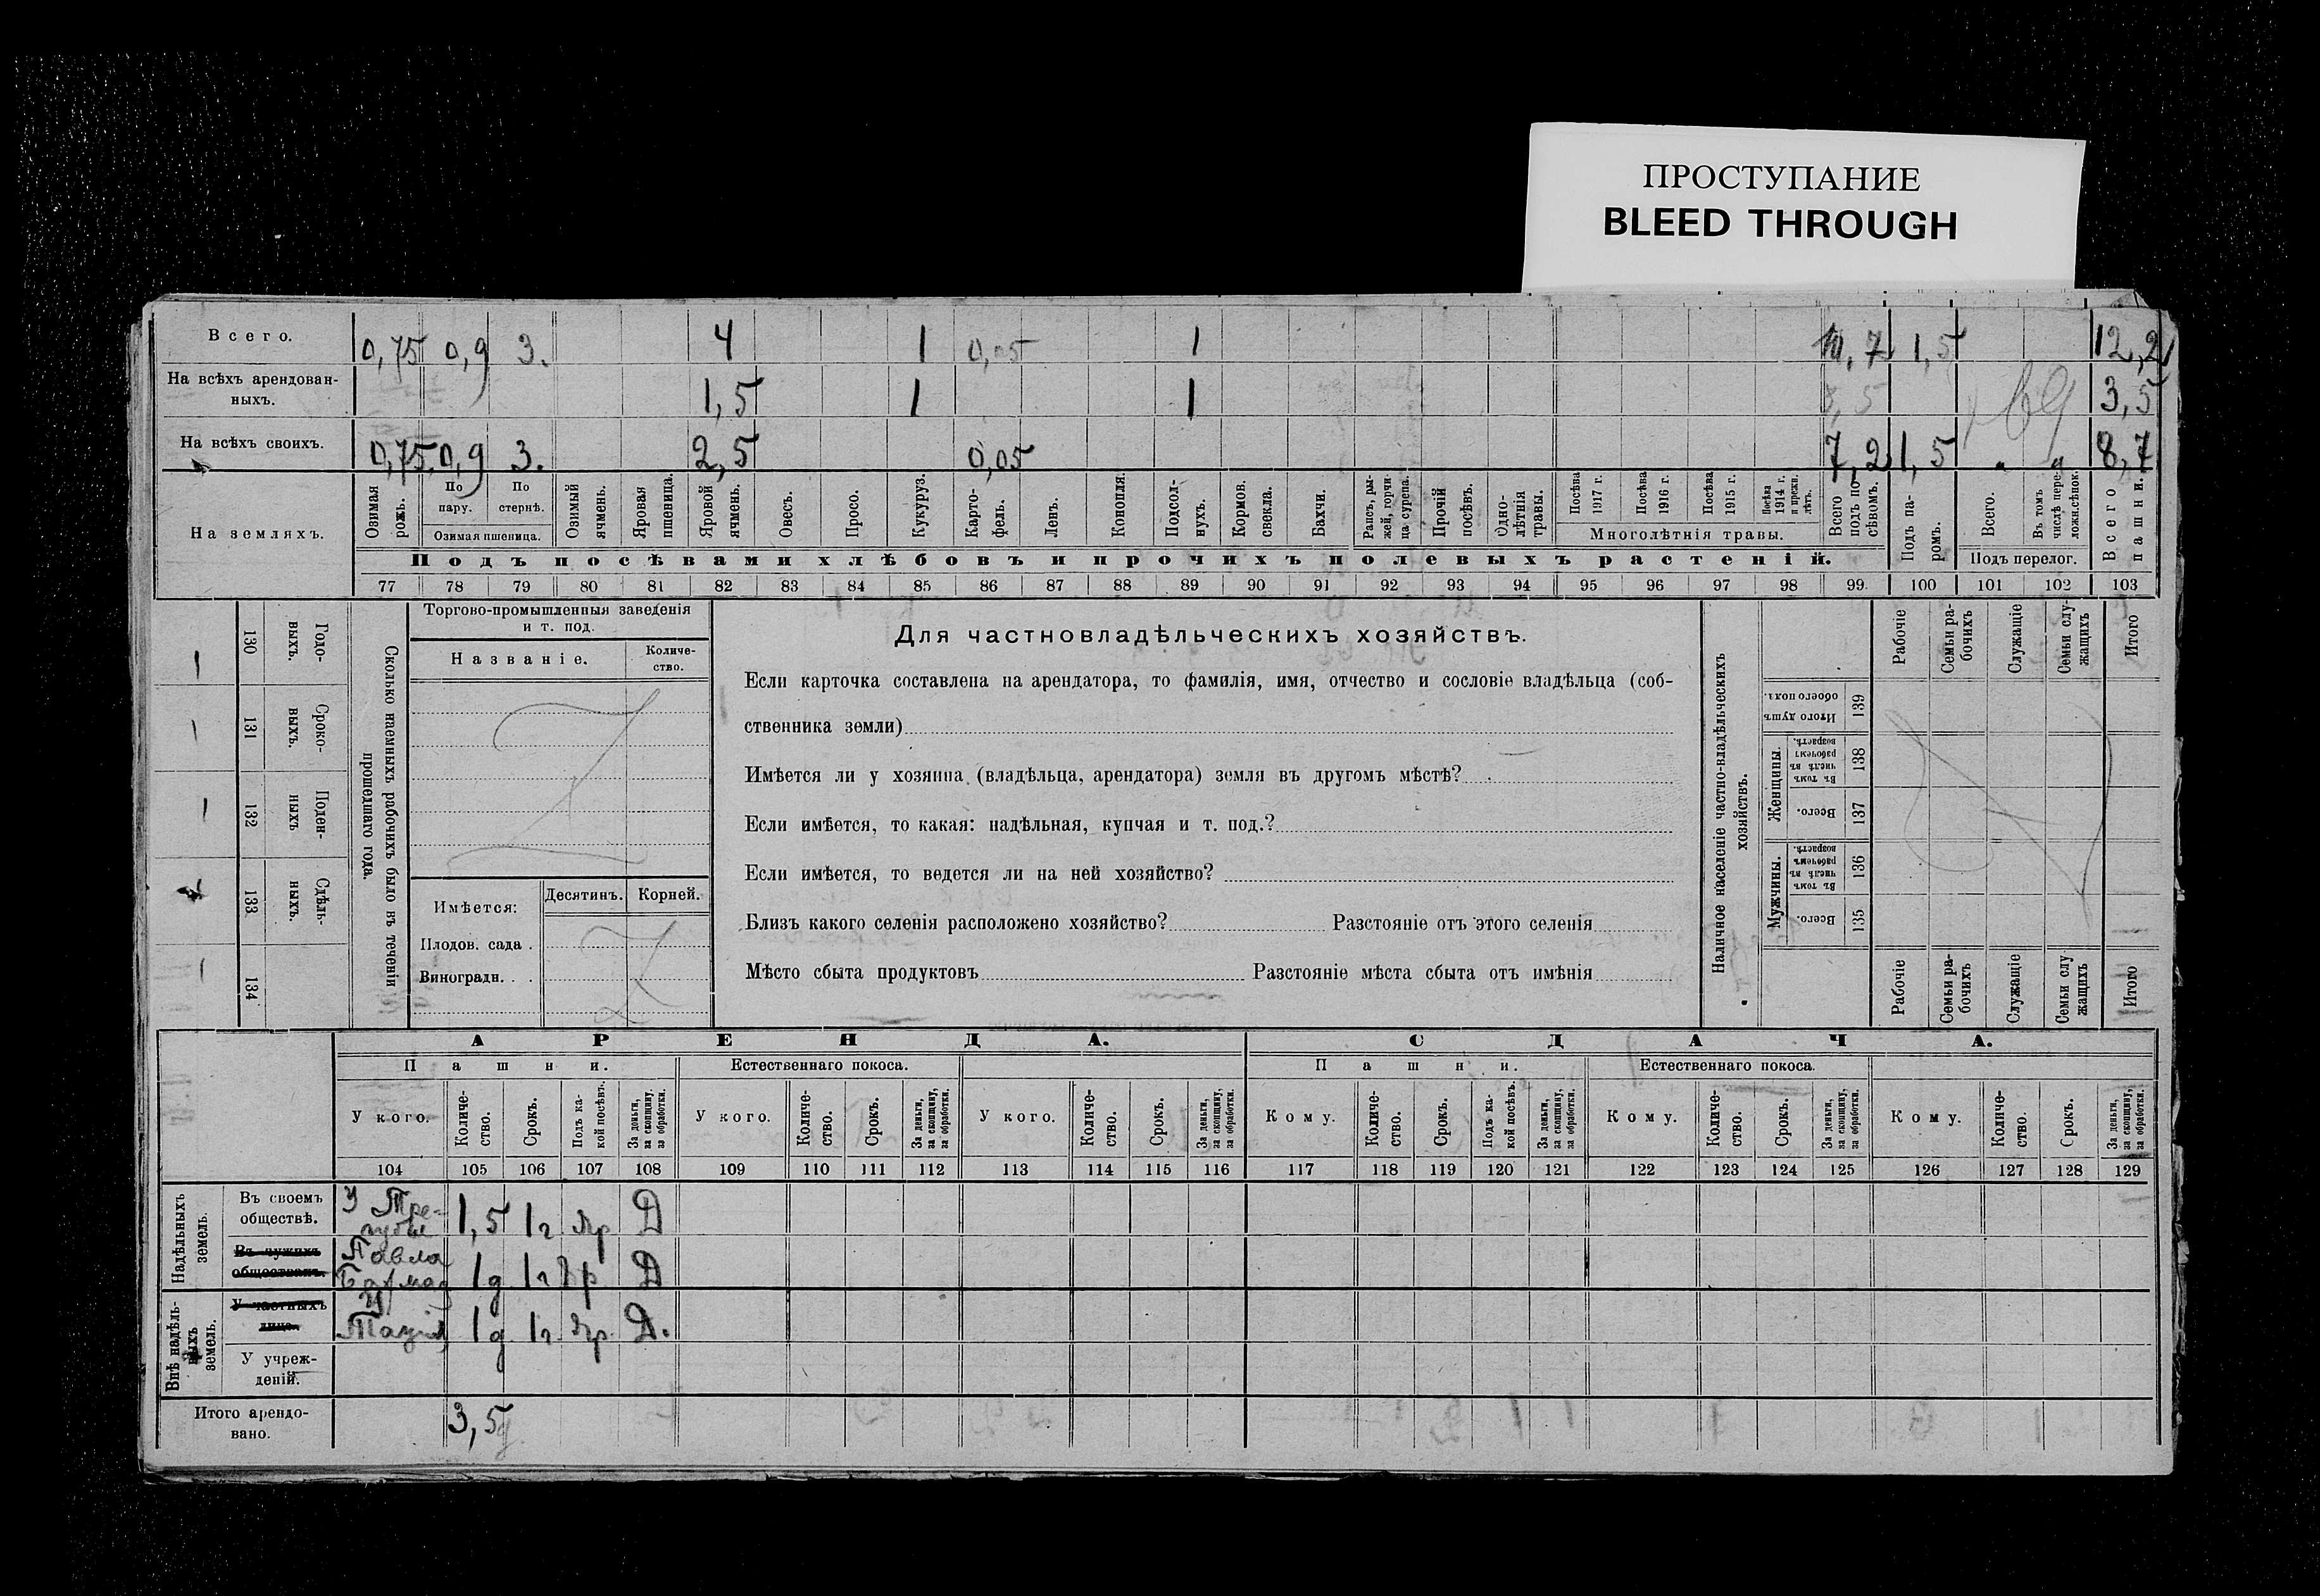 ПРОСТУПАНИЕ
BLEED THROUGH
Всего. 0,75 0,9 3. 4 1 0,05 1 7 1,5 12,2
На всѣхъ арендован-
ныхъ. 1,5 1 1 3,5 3,5
На всѣхъ своихъ. 0,75 0,9 3. 2,5 0,05 7,2 1,5 " " 8,7
На земляхъ.
Озимая рожь.
По пару.
По стернѣ.
Озимая пшеница.
Озимый ячмень.
Яровая пшеница.
Яровой ячмень.
Овесъ.
Просо.
Кукуруз.
Карто-
фель.
Ленъ.
Конопля.
Подсол-
нухъ.
Кормов. свекла.
Бахчи.
Рапсъ, ры-
жей, горчи-
ца сурепа.
Прочій посѣвъ.
Одно-
лѣтнія травы.
Посѣва 1917 г.
Посѣва 1916 г.
Посѣва 1915 г.
Посѣва 1914 г. и прежн. лѣтъ.
Многолѣтнія травы.
Всего подъ по-
сѣвомъ.
Подъ па-
ромъ.
Всего.
Въ томъ числѣ пере-
ложн.сѣнок.
Подъ перелог.
Всего пашни.
Подъ посѣвами хлѣбовъ и прочихъ полевыхъ растеній.
77 78 79 80 81 82 83 84 85 86 87 88 89 90 91 92 93 94 95 96 97 98 99 100 101 102 103
130 Годо-
выхъ.
131 Сроко-
выхъ.
132 Поден-
ныхъ
133 Сдѣль-
ныхъ.
134
Сколько наемныхъ рабочихъ было въ теченіи
прошедшаго года.
Торгово-промышленныя заведенія
и т. под.
Названіе.
Количе-
ство.
Имѣется:
Десятинъ. Корней.
Плодов. сада .
Виноградн. . .
Для частновладѣльческихъ хозяйствъ.
Если карточка составлена на арендатора, то фамилія, имя, отчество и сословіе владѣльца (соб-
ственника земли)
Имѣется ли у хозяина (владѣльца, арендатора) земля въ другомъ мѣстѣ?
Если имѣется, то какая: надѣльная, купчая и т. под.?
Если имѣется, то ведется ли на ней хозяйство?
Близъ какого селенія расположено хозяйство? Разстояніе отъ этого селенія
Мѣсто сбыта продуктовъ Разстояніе мѣста сбыта отъ имѣнія
Наличное населеніе частно-владѣльческихъ
хозяйствъ.
Рабочіе
Семьи ра-
бочихъ
Служащіе
Семьи слу-
жащихъ
Итого
Итого душъ обоего пола. 139
Женщины.
Въ томъ числѣ въ рабочемъ возрастѣ. 138
Всего. 137
Мужчины.
Въ томъ числѣ въ рабочемъ возрастѣ. 136
Всего. 135
Рабочіе
Семьи ра-
бочихъ
Служащіе
Семьи слу
жащихъ
Итого
АРЕНДА. СДАЧА.
Пашни. Естественнаго покоса. Пашни. Естественнаго покоса.
У кого.
Количе-
ство.
Срокъ.
Подъ ка-
кой посѣвъ.
За деньги,
за скопщину,
за обработки.
У кого.
Количе-
ство.
Срокъ.
За деньги,
за скопщину,
за обработки.
У кого.
Количе-
ство.
Срокъ.
За деньги,
за скопщину,
за обработки.
Кому.
Количе-
ство.
Срокъ.
Подъ ка-
кой посѣвъ.
За деньги,
за скопщину,
за обработки.
Кому.
Количе-
ство.
Срокъ.
За деньги,
за скопщину,
за обработки.
Кому.
Количе-
ство.
Срокъ.
За деньги,
за скопщину,
за обработки.
104 105 106 107 108 109 110 111 112 113 114 115 116 117 118 119 120 121 122 123 124 125 126 127 128 129
Надѣльныхъ
земель.
Въ своемъ
обществѣ. У 1,5 1г Яр Д
Въ чужихъ
обществахъ. Павла 1д 1г Яр Д
Внѣ надѣль-
ныхъ
земель.
У частныхъ
лицъ. 1д 1г Яр. Д.
У учреж-
деній.
Итого арендо-
вано. 3,5д